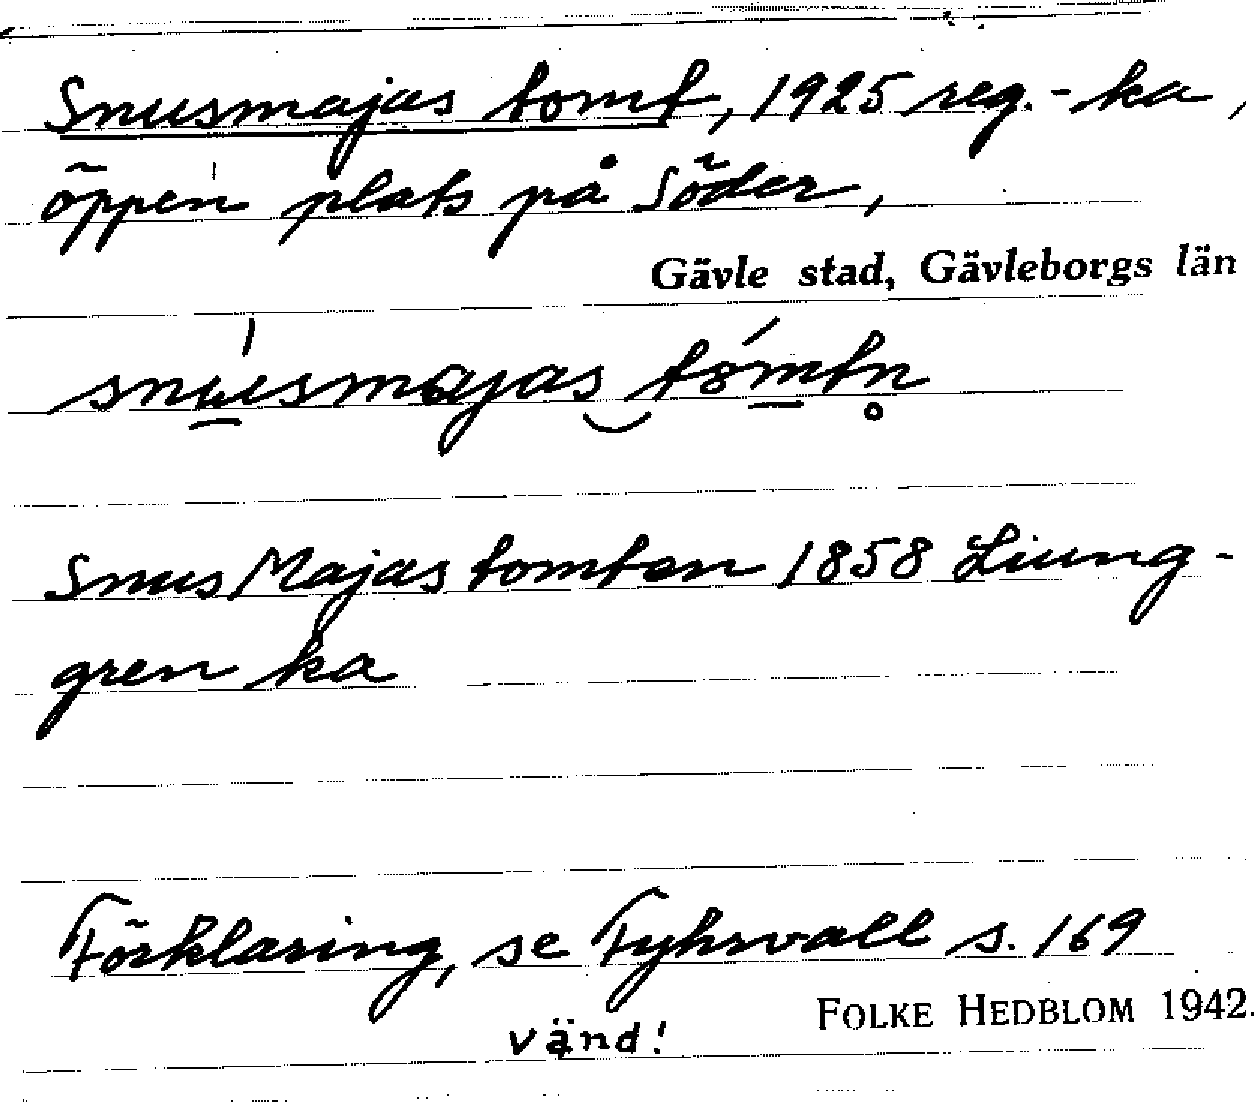 Snusmajas tomt, 1925 reg.-ka,
öppen plats på Söder,
Gävle stad, Gävleborgs län
snusmajas tomtn̥
Snus Majas tomten 1858 Liung-
gren ka
Förklaring, se Fyhrvall s. 169
FOLKE HEDBLOM 1942.
vänd!